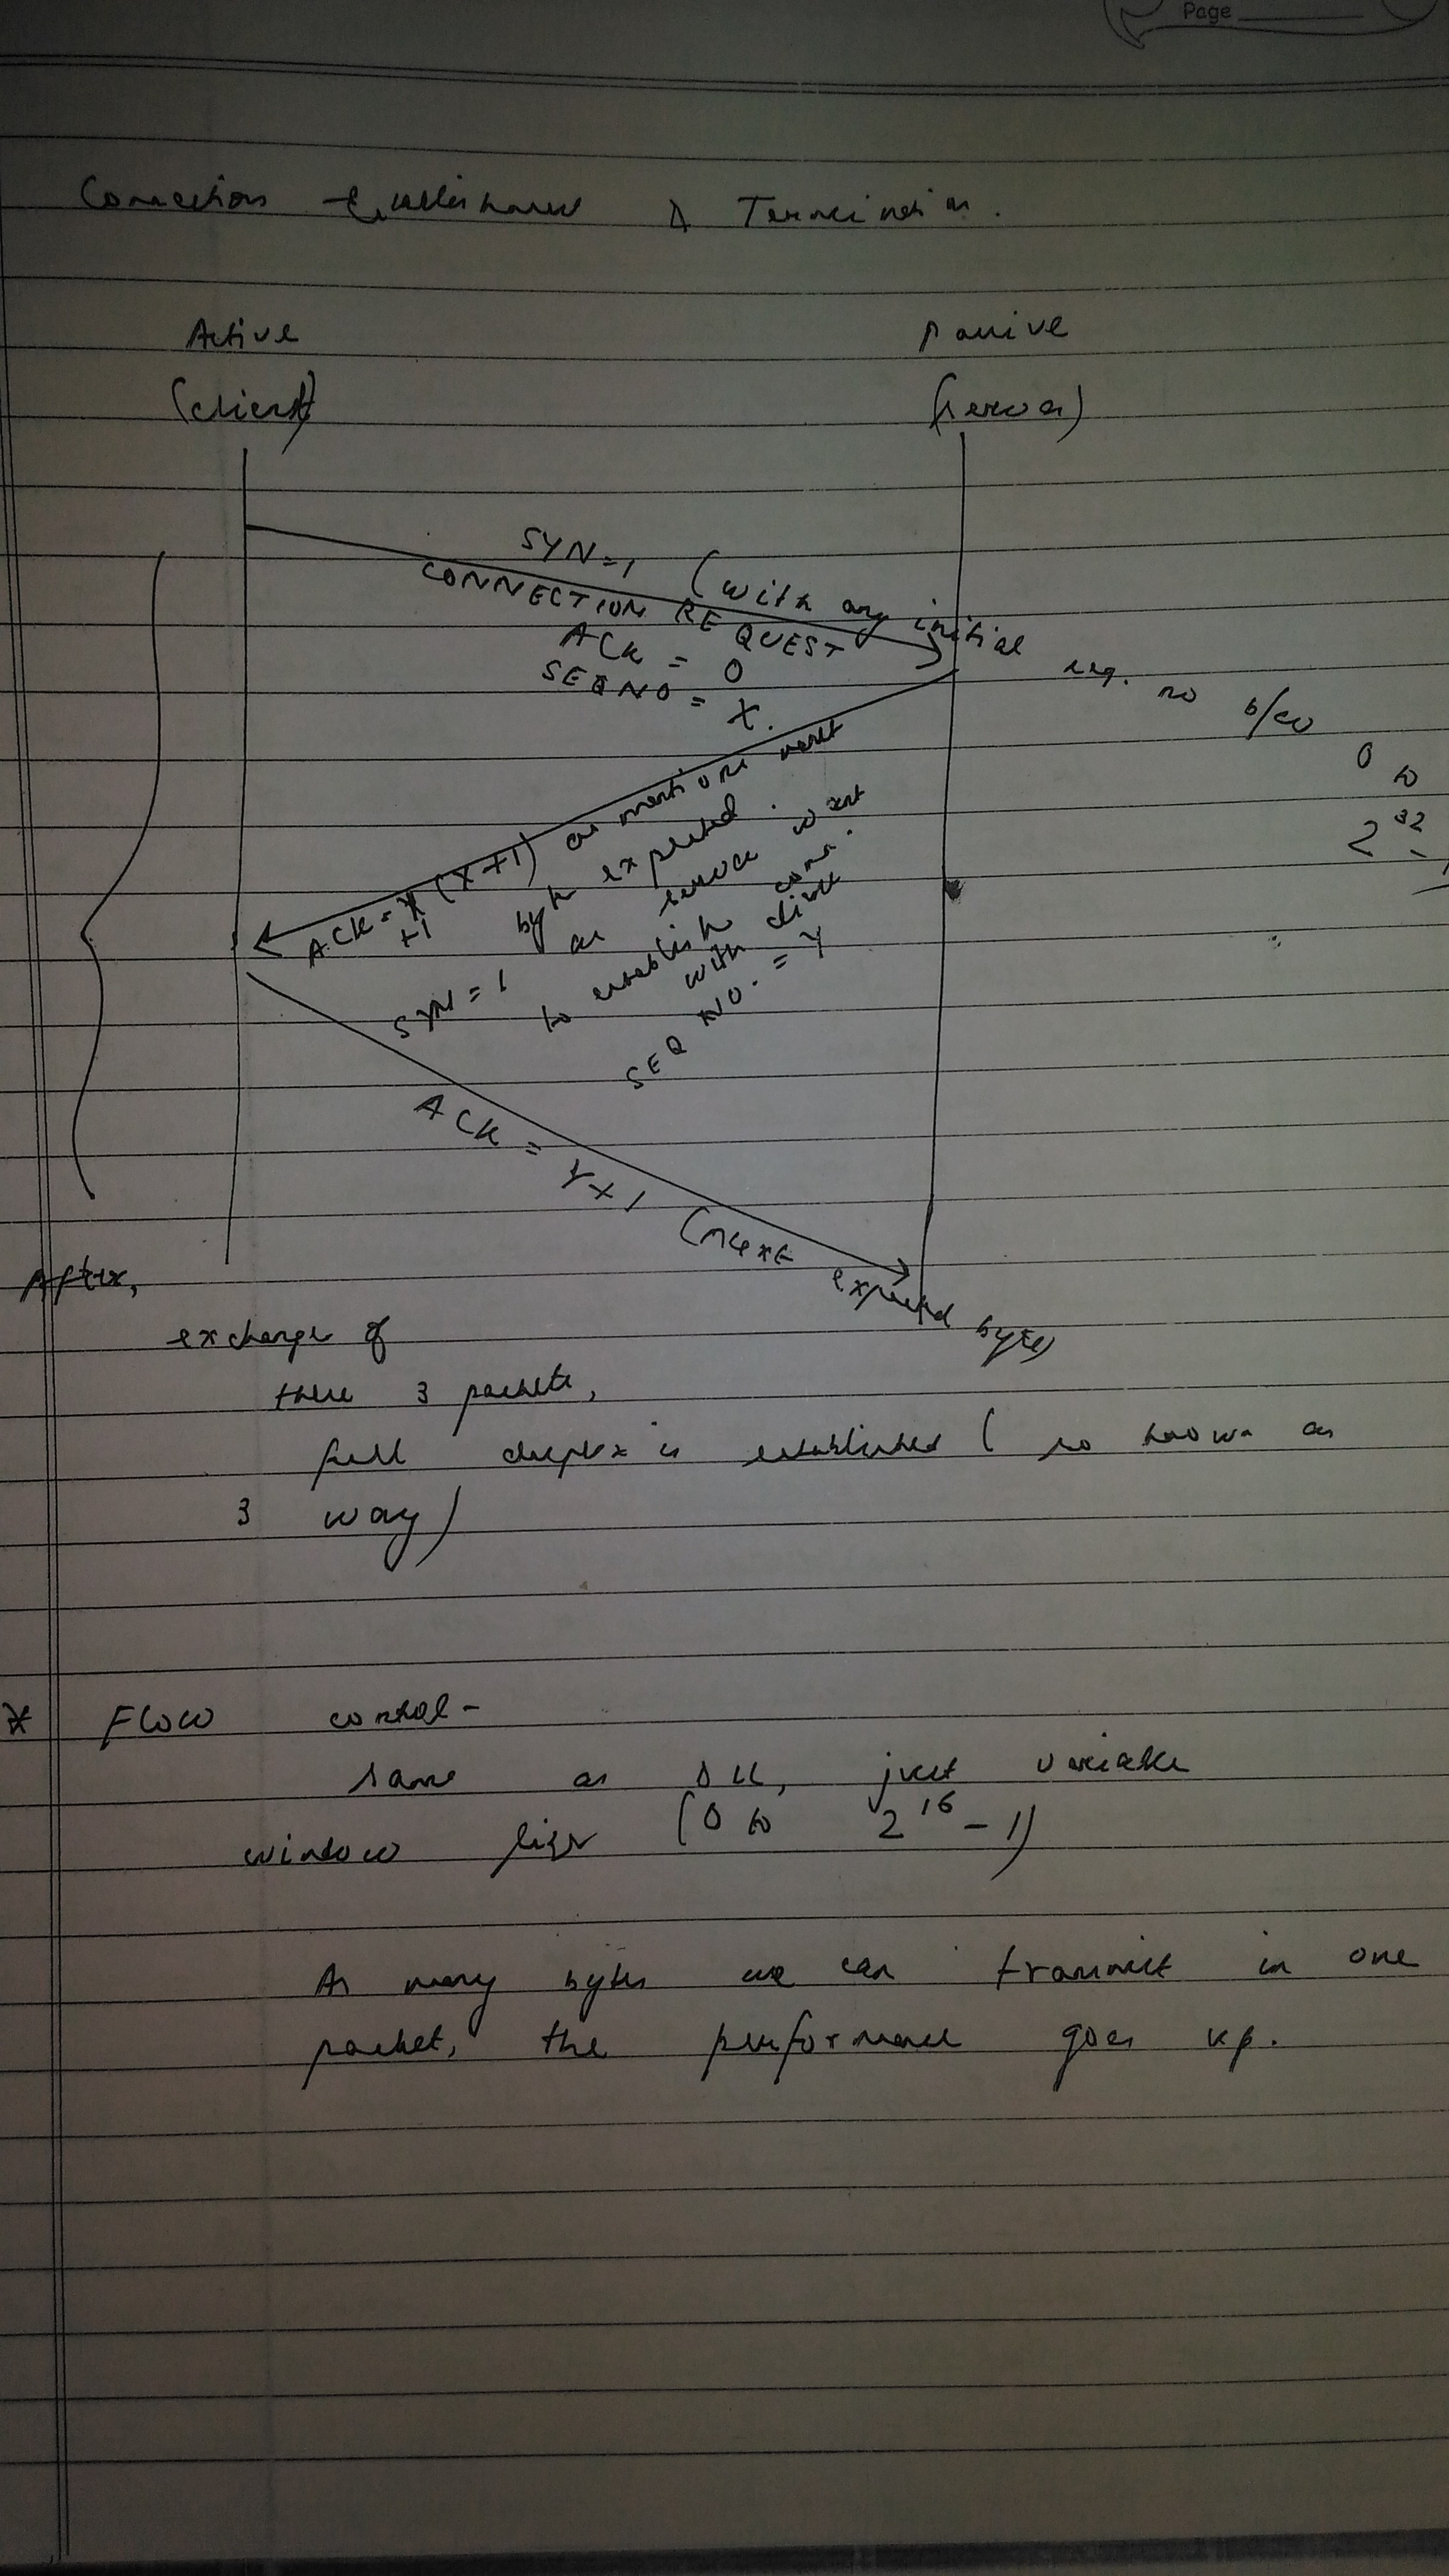 Page
Connection Establishment & Termination.
Active
passive
(client)
(server)
SYN=1 (with any initial seq. no b/w 0 to 2^32 - 1
CONNECTION REQUEST
ACK = 0
SEQ NO = X.
ACK = (X+1) as mentions next
+1 byte expected.
SYN = 1 as server want
to establish conn.
with client
SEQ NO. = Y
ACK = Y+1 (next expected byte)
After,
exchange of
these 3 packets,
full duplex is established ( so known as
3 way)
* Flow control -
same as DLL, just variable
window size (0 to 2^16 - 1)
As many bytes we can transmit in one
packet, the performance goes up.